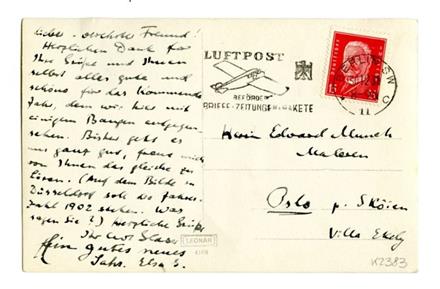 Lieber, verehrter Freund!
Herzlichen Dank für
Ihre Grüße und Ihnen
selbst alles gute und
schöne für das kommende
Jahr, dem wir hier mit
einigem Bangen entgegen-
sehen. Bisher geht es
uns ganz gut, freue mich
von Ihnen das gleiche zu
(Auf dem Bilde in
Düsseldorf soll die Jahres-
zahl 1902 stehen. Was
sagen Sie?) Herzliche Grüße
Ihr Curt Glaser
Ein gutes neues
Jahr. Elsa G.
LUFTPOST
BEFÖRDERT
BRIEFE·ZEITUNGEN·PAKETE
DEUTSCHES REICH
15
BERLIN SW
11
Herrn Edvard Munch
Maleren
Oslo p. Skøien
Villa Ekely
LEONAR
K2383